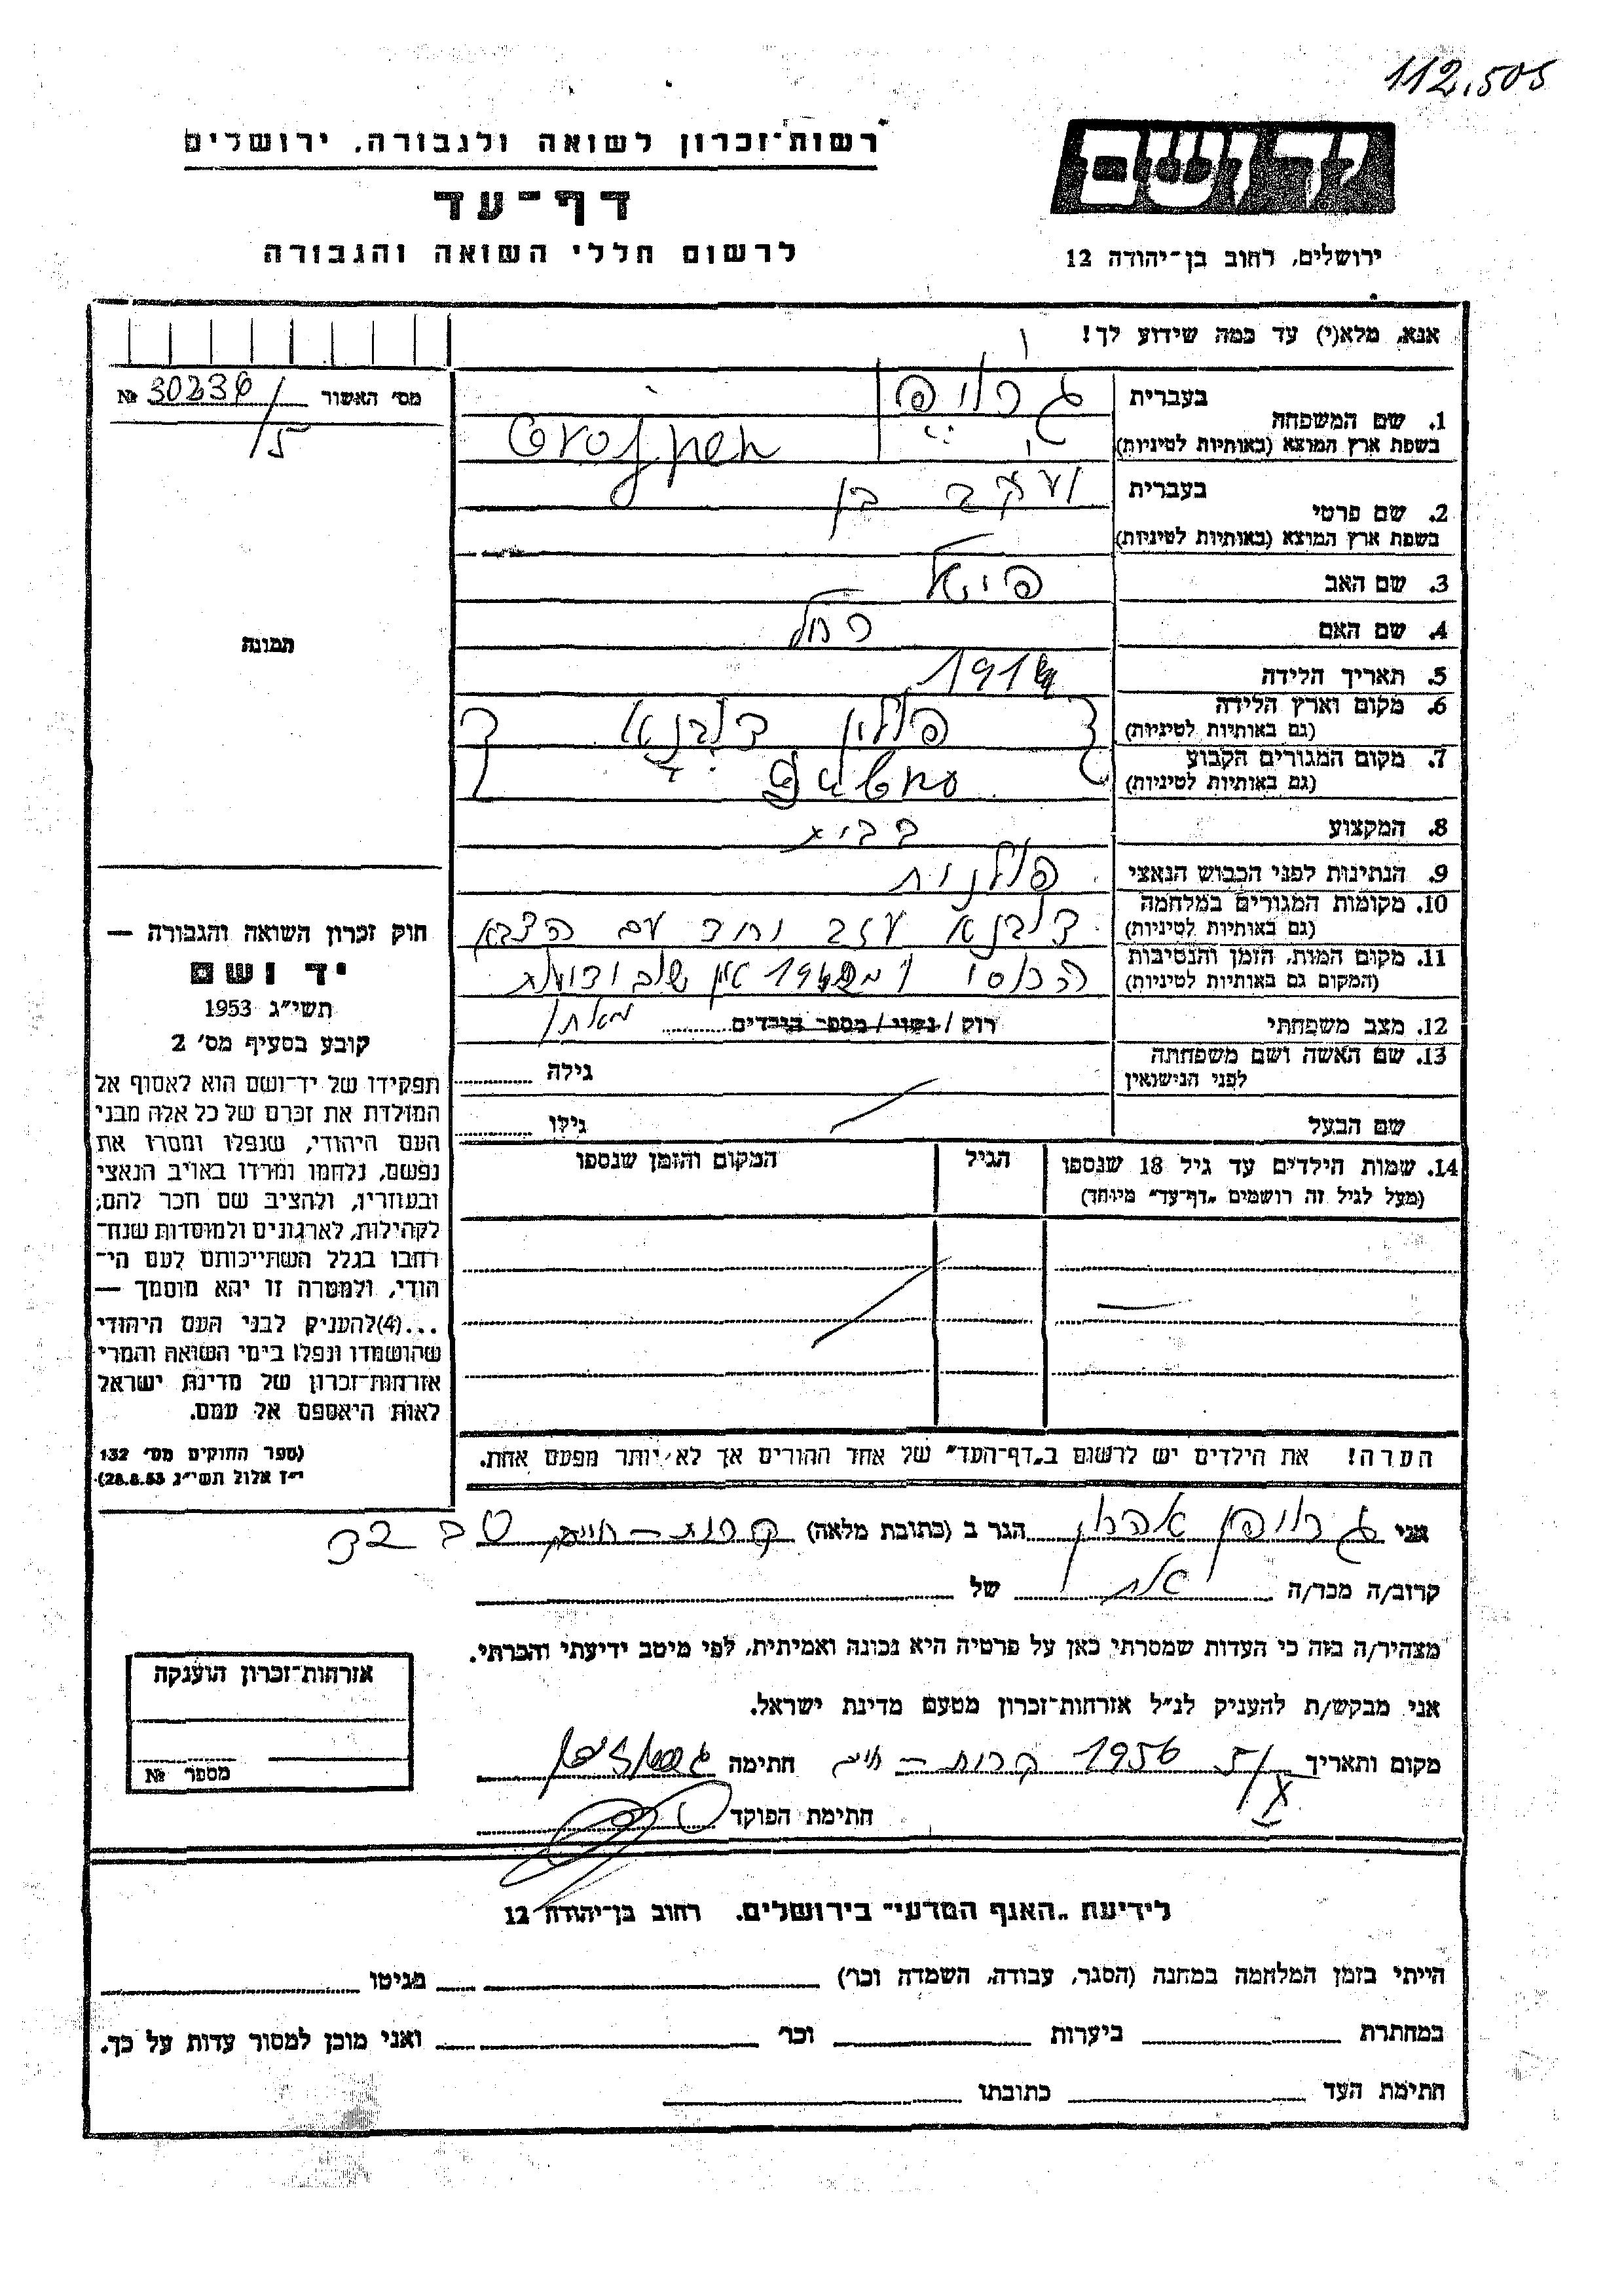 112.505
יד ושם
רשות־זכרון לשואה ולגבורה, ירושלים
דף־עד
לרשום חללי השואה והגבורה
ירושלים, רחוב בן־יהודה 12
אנא, מלא(י) עד כמה שידוע לך!
מס' האשור № 30236/5
1. שם המשפחה
בעברית
בשפת ארץ המוצא (באותיות לטיניות)
2. שם פרטי
בעברית יעקב בן
בשפת ארץ המוצא (באותיות לטיניות)
3. שם האב
4. שם האם רחל
5. תאריך הלידה
6. מקום וארץ הלידה פולין דובנא
(גם באותיות לטיניות)
7. מקום המגורים הקבוע
(גם באותיות לטיניות)
8. המקצוע
9. הנתינות לפני הכבוש הנאצי פולנית
10. מקומות המגורים במלחמה דובנא עזב יחד עם הצבא
(גם באותיות לטיניות)
11. מקום המות, הזמן והנסיבות הרוסי
(המקום גם באותיות לטיניות)
12. מצב משפחתי רוק / נשוי / מספר הילדים
13. שם האשה ושם משפחתה
לפני הנישואין
גילה
שם הבעל גילו
14. שמות הילדים עד גיל 18 שנספו הגיל המקום והזמן שנספו
(מעל לגיל זה רושמים „דף־עד" מיוחד)
הערה! את הילדים יש לרשום ב„דף־העד" של אחד ההורים אך לא יותר מפעם אחת.
תמונה
חוק זכרון השואה והגבורה —
יד ושם
תשי"ג 1953
קובע בסעיף מס' 2
תפקידו של יד־ושם הוא לאסוף אל
המולדת את זכרם של כל אלה מבני
העם היהודי, שנפלו ומסרו את
נפשם, נלחמו ומרדו באויב הנאצי
ובעוזריו, ולהציב שם וזכר להם,
לקהילות, לארגונים ולמוסדות שנח־
רבו בגלל השתייכותם לעם הי־
הודי, ולמטרה זו יהא מוסמך —
...(4) להעניק לבני העם היהודי
שהושמדו ונפלו בימי השואה והמרי
אזרחות־זכרון של מדינת ישראל
לאות היאספם אל עמם.
(ספר החוקים מס' 132
י"ז אלול תשי"ג 28.8.53)
אני גרויפן אהרן הגר ב (כתובת מלאה) קרית־חיים
קרוב/ה מכר/ה של
מצהיר/ה בזה כי העדות שמסרתי כאן על פרטיה היא נכונה ואמיתית, לפי מיטב ידיעתי והכרתי.
אני מבקש/ת להעניק לנ"ל אזרחות־זכרון מטעם מדינת ישראל.
מקום ותאריך 5/X 1956 קרית־חיים חתימה
חתימת הפוקד
אזרחות־זכרון הוענקה
מספר №
לידיעת „האגף המדעי" בירושלים, רחוב בן־יהודה 12
הייתי בזמן המלחמה במחנה (הסגר, עבודה, השמדה וכו') בגיטו
במחתרת ביערות וכו' ואני מוכן למסור עדות על כך.
חתימת העד כתובתו